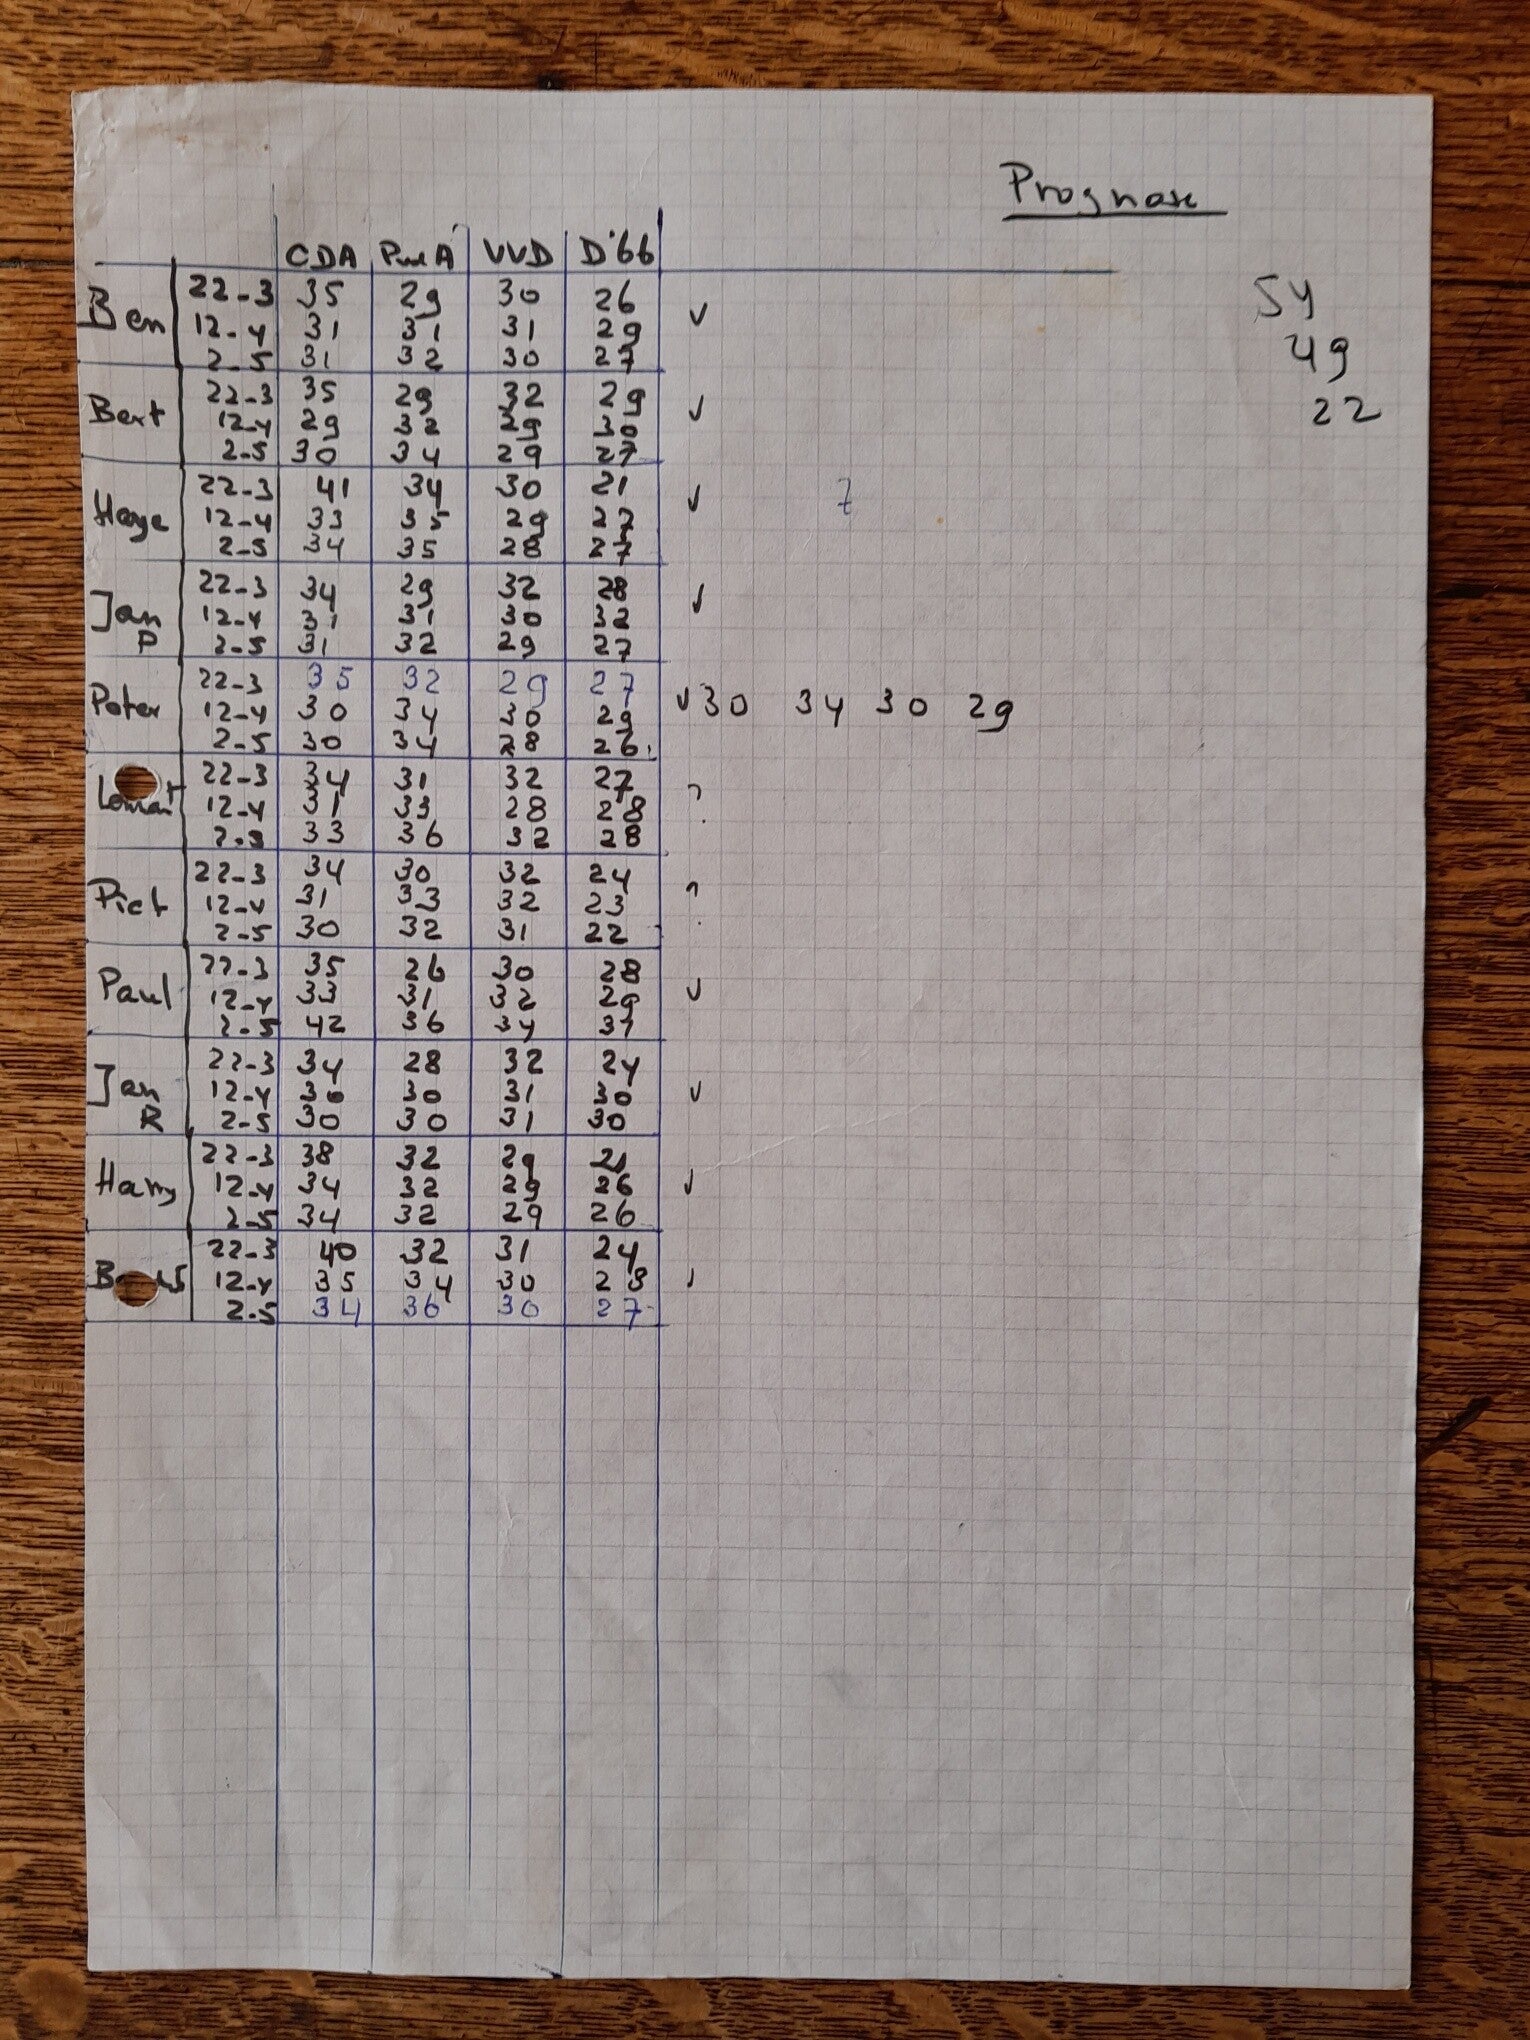 Prognose
CDA PvdA VVD D'66
54
49
22
Ben 22-3 35 29 30 26 v
12-4 31 31 31 29
2-5 31 32 30 27
Bert 22-3 35 29 32 29 v
12-4 29 32 29 30
2-5 30 34 29 27
Haye 22-3 41 34 30 21 v 7
12-4 33 35 29 27
2-5 34 35 28 27
Jan P 22-3 34 29 32 28 v
12-4 31 31 30 32
2-5 31 32 29 27
Peter 22-3 35 32 29 27
12-4 30 34 30 29 v 30 34 30 29
2-5 30 34 28 26
22-3 34 31 32 27 ?
12-4 31 33 28 28
2-5 33 36 32 28
Piet 22-3 34 30 32 24 ?
12-4 31 33 32 23
2-5 30 32 31 22
Paul 22-3 35 26 30 28
12-4 33 31 32 29 v
2-5 42 36 34 31
Jan R 22-3 34 28 32 24
12-4 30 30 31 30 v
2-5 30 30 31 30
Harry 22-3 38 32 29 21
12-4 34 32 29 26 v
2-5 34 32 29 26
22-3 40 32 31 24
12-4 35 34 30 28 v
2-5 34 36 30 27